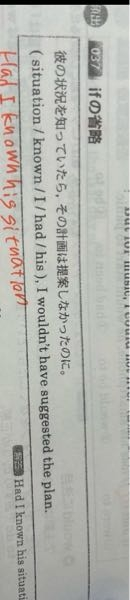 But for music, I could
頻出 037 ifの省略
彼の状況を知っていたら、その計画は提案しなかったのに。
( situation / known / I / had / his ), I wouldn't have suggested the plan.
Had I known his situation
解答 Had I known his situati